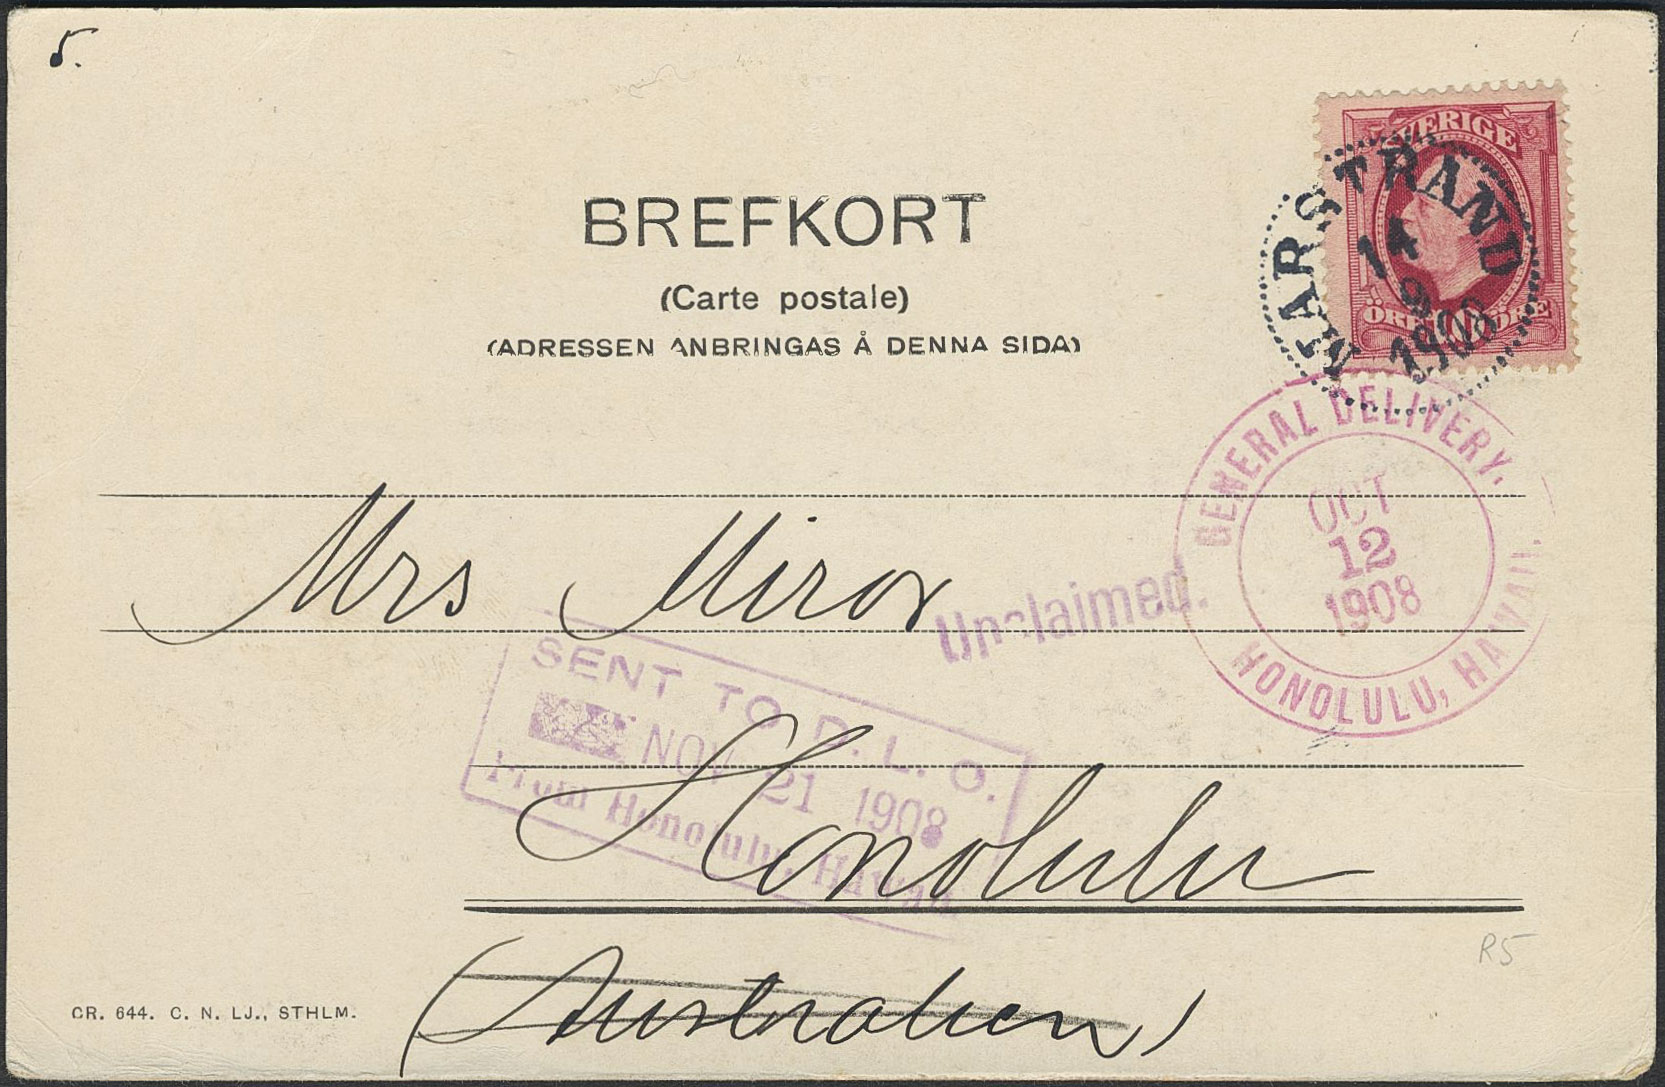 5.
SVERIGE
ÖRE 10 ÖRE
MARSTRAND
14
9
1908
BREFKORT
(Carte postale)
(ADRESSEN ANBRINGAS Å DENNA SIDA)
GENERAL DELIVERY.
OCT
12
1908
HONOLULU, HAWAII.
Mrs Miror
Unclaimed.
SENT TO D. L. O.
NOV 21 1908
From Honolulu, Hawaii.
Honolulu
(Australien)
R5
CR. 644. C. N. LJ., STHLM.